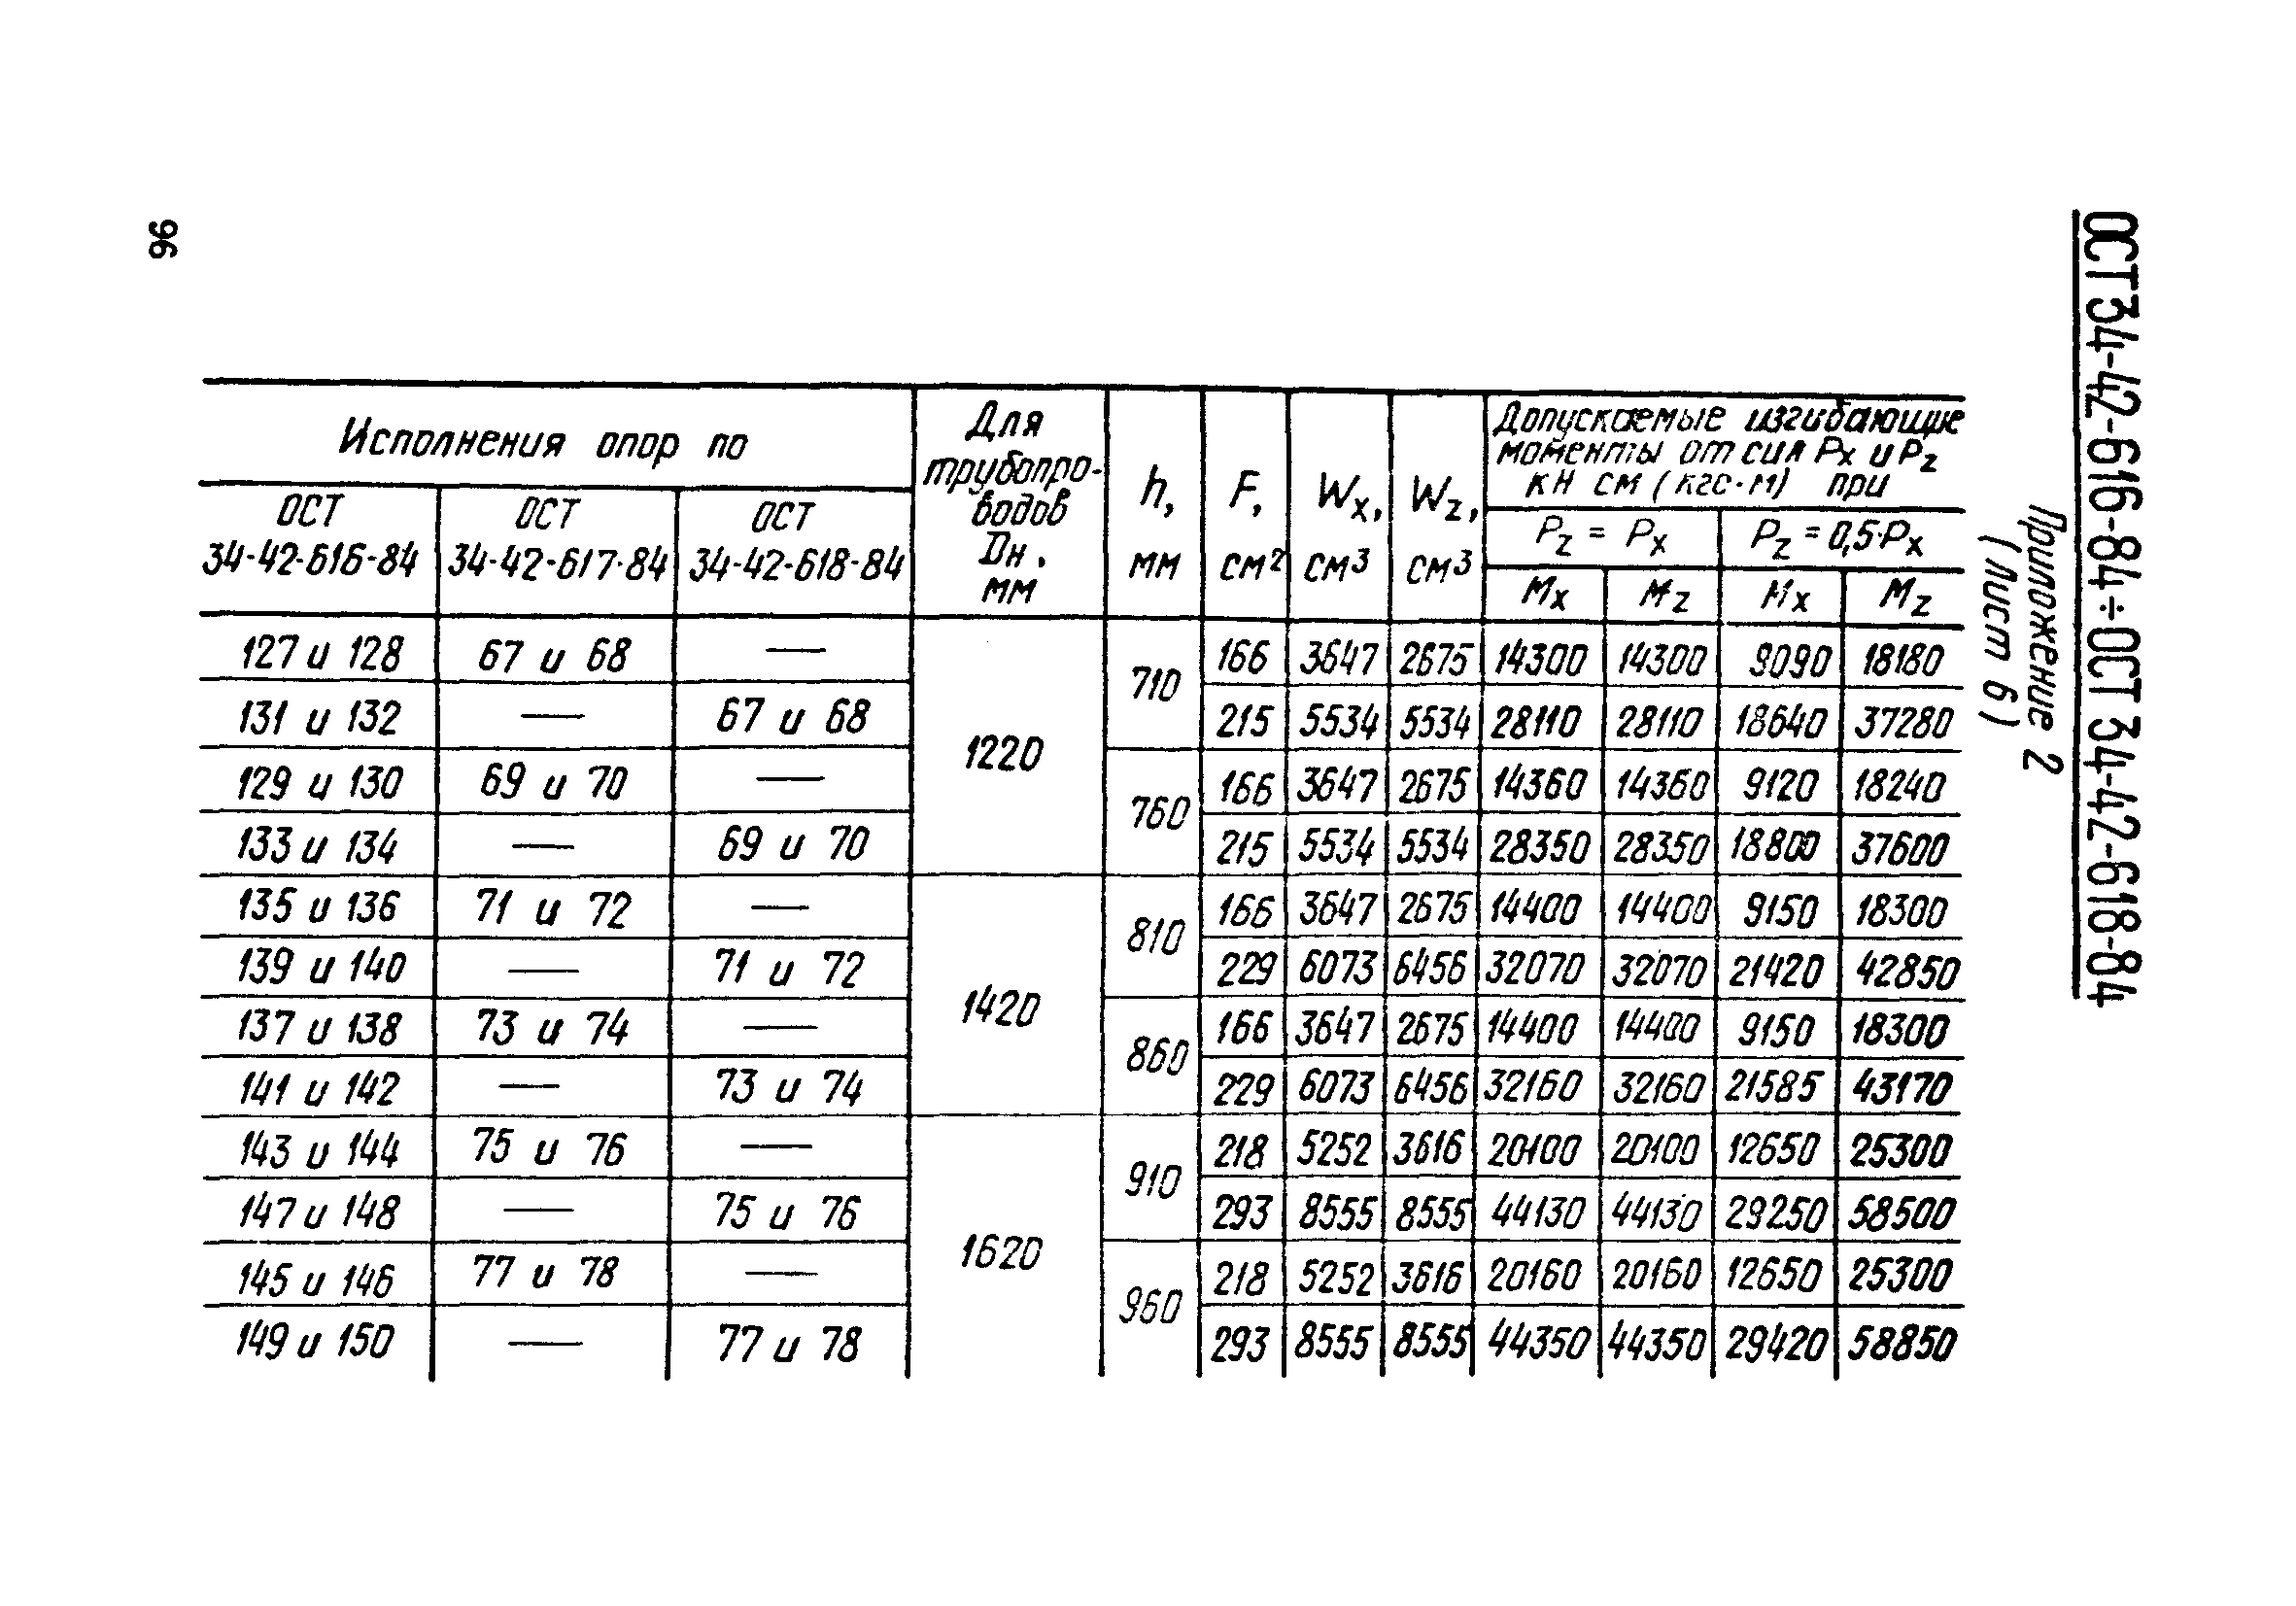 96
ОСТ 34-42-616-84÷ОСТ 34-42-618-84
Приложение 2
(Лист 6)
Исполнения опор по
ОСТ
34-42-616-84
ОСТ
34-42-617-84
ОСТ
34-42-618-84
Для
трубопро-
водов
Dн.
мм
h,
мм
F,
см²
Wx,
см³
Wz,
см³
Допускаемые изгибающие
моменты от сил Px и Pz
кН см (кгс·м) при
Pz = Px
Pz = 0,5·Px
Mx Mz Mx Mz
127 и 128 67 и 68 — 1220 710 166 3647 2675 14300 14300 9090 18180
131 и 132 — 67 и 68 215 5534 5534 28110 28110 18640 37280
129 и 130 69 и 70 — 760 166 3647 2675 14360 14360 9120 18240
133 и 134 — 69 и 70 215 5534 5534 28350 28350 18800 37600
135 и 136 71 и 72 — 1420 810 166 3647 2675 14400 14400 9150 18300
139 и 140 — 71 и 72 229 6073 6456 32070 32070 21420 42850
137 и 138 73 и 74 — 860 166 3647 2675 14400 14400 9150 18300
141 и 142 — 73 и 74 229 6073 6456 32160 32160 21585 43170
143 и 144 75 и 76 — 1620 910 218 5252 3616 20100 20100 12650 25300
147 и 148 — 75 и 76 293 8555 8555 44130 44130 29250 58500
145 и 146 77 и 78 — 960 218 5252 3616 20160 20160 12650 25300
149 и 150 — 77 и 78 293 8555 8555 44350 44350 29420 58850